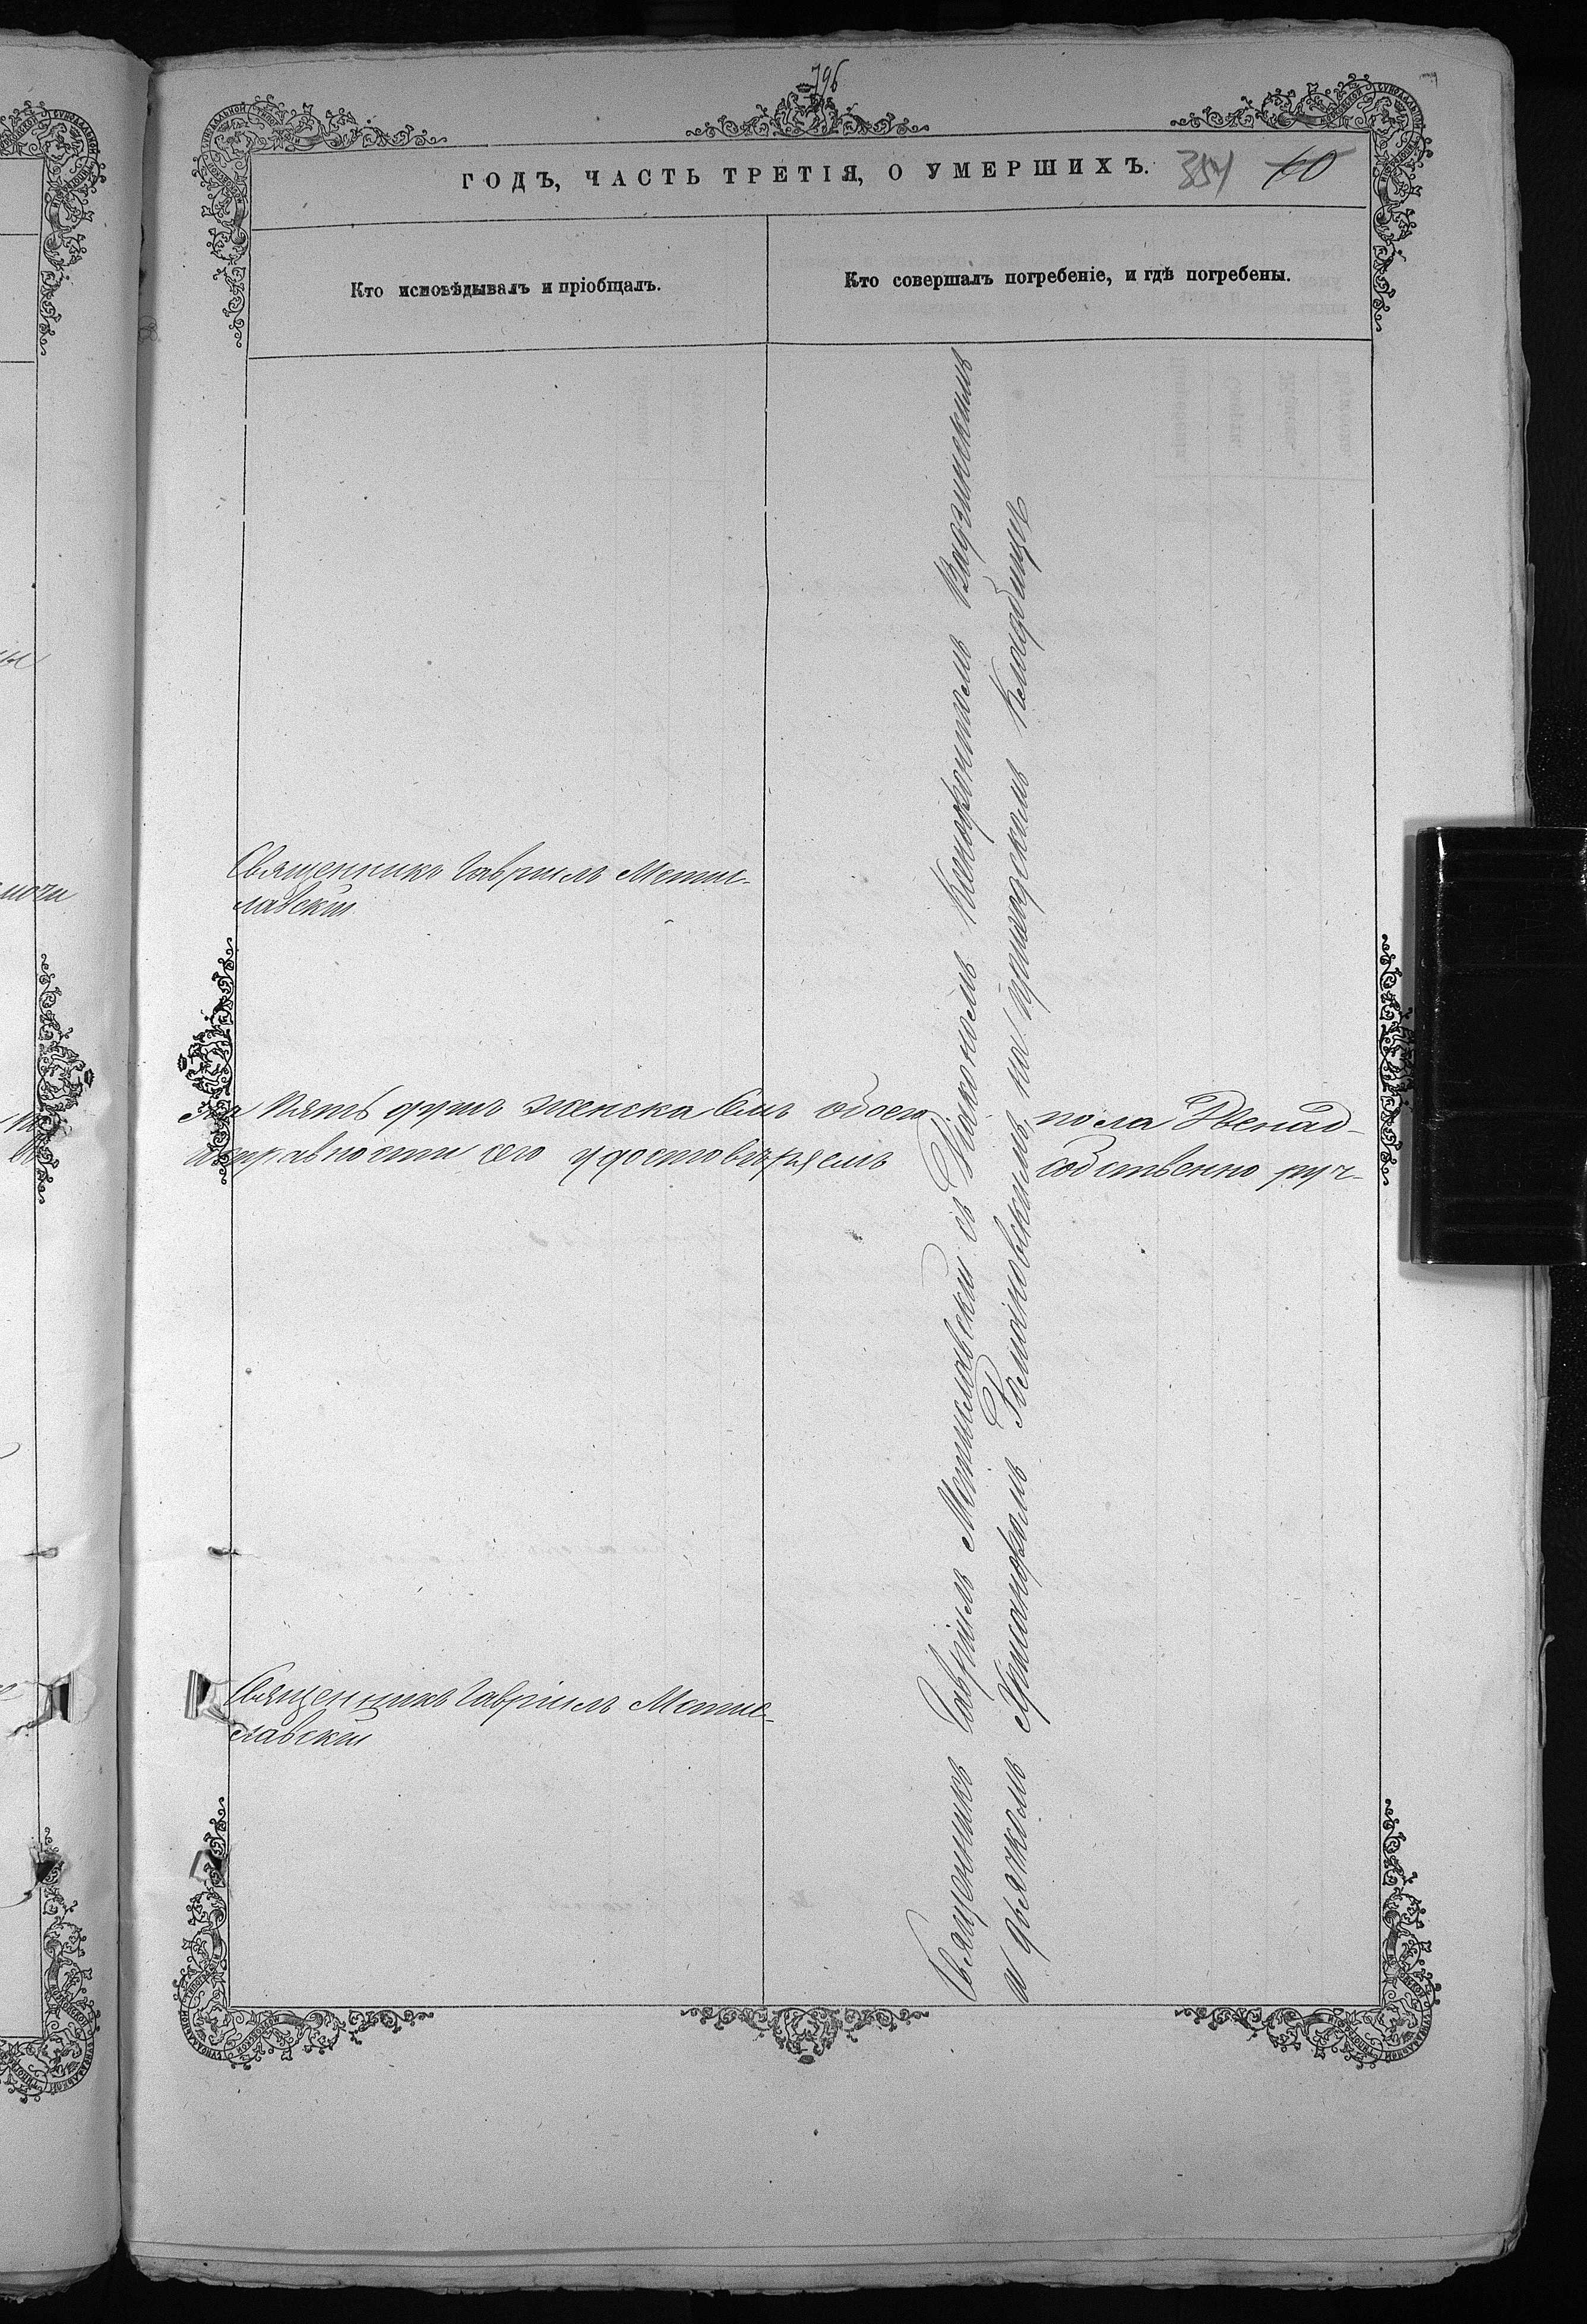 796
ГОДЪ, ЧАСТЬ ТРЕТІЯ, О УМЕРШИХЪ.
354 60
Кто исповѣдывалъ и пріобщалъ.
Кто совершалъ погребеніе, и гдѣ погребены.
Священникъ Гавріилъ Мстис-
лавскій
пять душъ женска обоего пола Двенад-
исправности сего удостовѣряемъ собственно руч-
Священникъ Гавріилъ Мстис-
лавскій
Священникъ Гавріилъ Мстиславскій съ Діакономъ Ксенофонтомъ
и дьячкомъ Хрисанфомъ на приходскомъ кладбищѣ